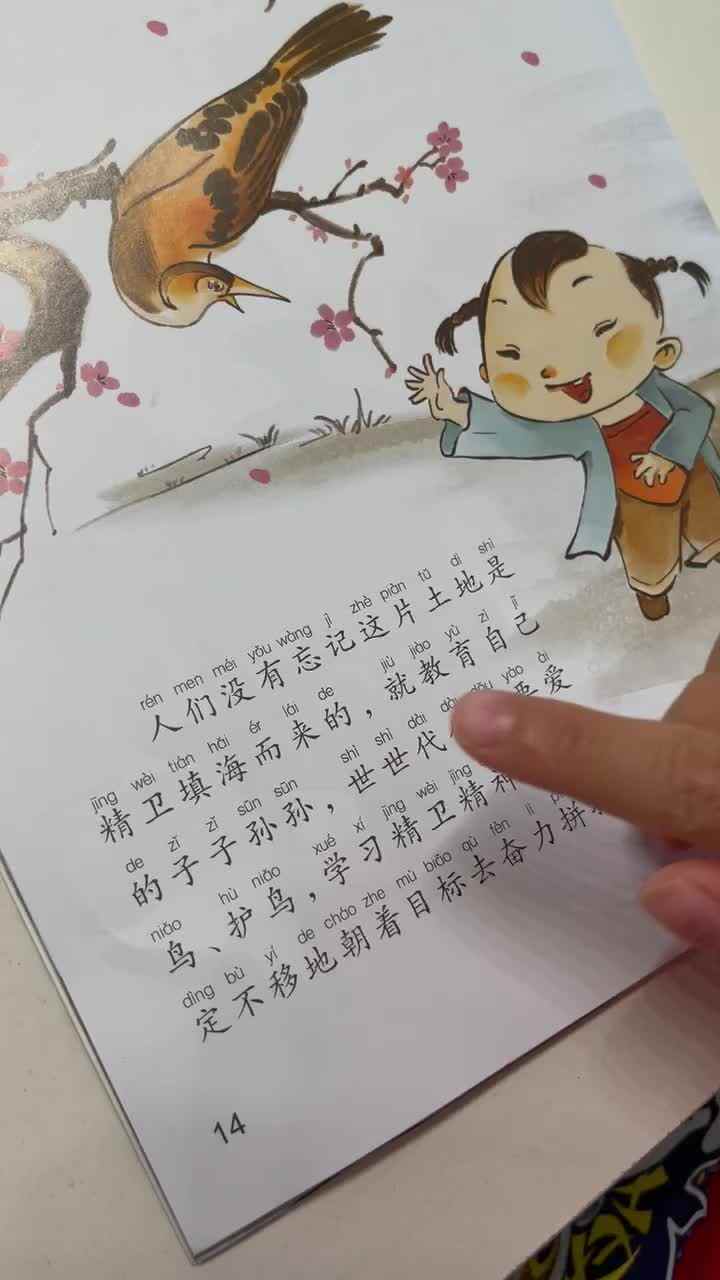 rén men méi yǒu wàng jì zhè piàn tǔ dì shì
人们没有忘记这片土地是
jīng wèi tián hǎi ér lái de jiù jiào yù zì jǐ
精卫填海而来的，就教育自己
de zǐ zǐ sūn sūn shì shì dài dài dōu yào ài
的子子孙孙，世世代 爱
niǎo hù niǎo xué xí jīng wèi jīng
鸟、护鸟，学习精卫精神
dìng bù yí de cháo zhe mù biāo qù fèn lì
定不移地朝着目标去奋力拼
14